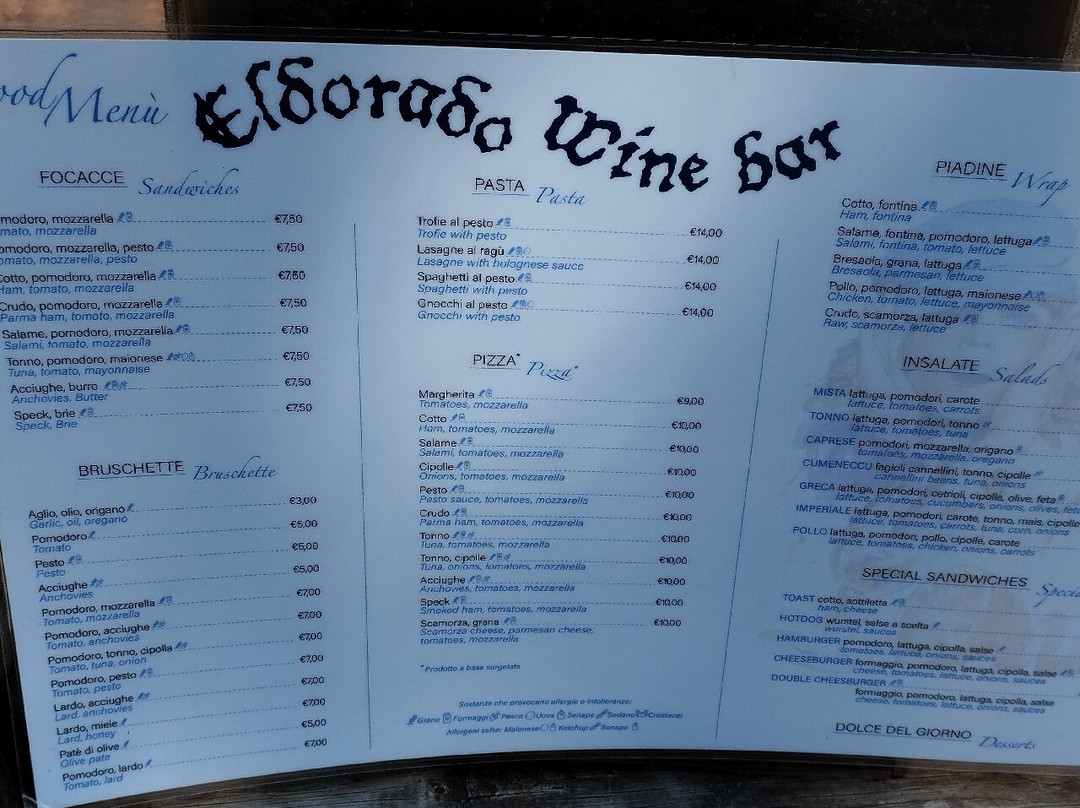 ood Menù
Eldorado Wine bar
FOCACCE Sandwiches
modoro, mozzarella €7,50
mato, mozzarella
omodoro, mozzarella, pesto €7,50
omato, mozzarella, pesto
Cotto, pomodoro, mozzarella €7,50
Ham, tomato, mozzarella
Crudo, pomodoro, mozzarella €7,50
Parma ham, tomato, mozzarella
Salame, pomodoro, mozzarella €7,50
Salami, tomato, mozzarella
Tonno, pomodoro, maionese €7,50
Tuna, tomato, mayonnaise
Acciughe, burro €7,50
Anchovies, Butter
Speck, brie €7,50
Speck, Brie
BRUSCHETTE Bruschette
Aglio, olio, origano €3,00
Garlic, oil, oregano
Pomodoro €5,00
Tomato
Pesto €5,00
Pesto
Acciughe €5,00
Anchovies
Pomodoro, mozzarella €7,00
Tomato, mozzarella
Pomodoro, acciughe €7,00
Tomato, anchovies
Pomodoro, tonno, cipolla €7,00
Tomato, tuna, onion
Pomodoro, pesto €7,00
Tomato, pesto
Lardo, acciughe €7,00
Lard, anchovies
Lardo, miele €7,00
Lard, honey
Patè di olive €5,00
Olive pate
Pomodoro, lardo €7,00
Tomato, lard
PASTA Pasta
Trofie al pesto €14,00
Trofie with pesto
Lasagne al ragù €14,00
Lasagne with bolognese sauce
Spaghetti al pesto €14,00
Spaghetti with pesto
Gnocchi al pesto €14,00
Gnocchi with pesto
PIZZA* Pizza*
Margherita €9,00
Tomatoes, mozzarella
Cotto €10,00
Ham, tomatoes, mozzarella
Salame €10,00
Salami, tomatoes, mozzarella
Cipolle €10,00
Onions, tomatoes, mozzarella
Pesto €10,00
Pesto sauce, tomatoes, mozzarella
Crudo €10,00
Parma ham, tomatoes, mozzarella
Tonno €10,00
Tuna, tomatoes, mozzarella
Tonno, cipolle €10,00
Tuna, onions, tomatoes, mozzarella
Acciughe €10,00
Anchovies, tomatoes, mozzarella
Speck €10,00
Smoked ham, tomatoes, mozzarella
Scamorza, grana €10,00
Scamorza cheese, parmesan cheese,
tomatoes, mozzarella
*Prodotto a base surgelata
Sostanze che provocano allergie o intolleranze:
Grano Formaggi Pesce Uova Senape Sedano Crostacei
Allergeni salse: Maionese Ketchup Senape
PIADINE Wrap
Cotto, fontina
Ham, fontina
Salame, fontina, pomodoro, lattuga
Salami, fontina, tomato, lettuce
Bresaola, grana, lattuga
Bresaola, parmesan, lettuce
Pollo, pomodoro, lattuga, maionese
Chicken, tomato, lettuce, mayonnaise
Crudo, scamorza, lattuga
Raw, scamorza, lettuce
INSALATE Salads
MISTA lattuga, pomodori, carote
lattuce, tomatoes, carrots
TONNO lattuga, pomodori, tonno
lattuce, tomatoes, tuna
CAPRESE pomodori, mozzarella, origano
tomatoes, mozzarella, oregano
CUMENECCU fagioli cannellini, tonno, cipolle
cannellini beens, tuna, onions
GRECA lattuga, pomodori, cetrioli, cipolla, olive, feta
lattuce, tomatoes, cucumbers, onions, olives, feta
IMPERIALE lattuga, pomodori, carote, tonno, mais, cipolle
lattuce, tomatoes, carrots, tuna, corn, onions
POLLO lattuga, pomodori, pollo, cipolla, carote
lattuce, tomatoes, chicken, onions, carrots
SPECIAL SANDWICHES Speci
TOAST cotto, sottiletta
ham, cheese
HOTDOG wurstel, salse a scelta
wurstel, sauces
HAMBURGER pomodoro, lattuga, cipolla, salse
tomatoes, lattuce, onions, sauces
CHEESEBURGER formaggio, pomodoro, lattuga, cipolla, salse
cheese, tomatoes, lattuce, onions, sauces
DOUBLE CHEESBURGER
formaggio, pomodoro, lattuga, cipolla, salse
cheese, tomatoes, lattuce, onions, sauces
DOLCE DEL GIORNO Desserts